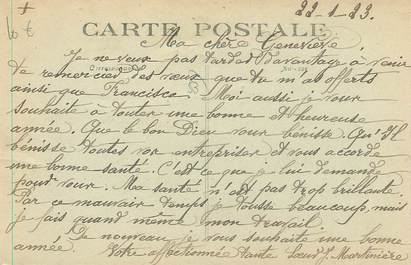 22-1-23.
CARTE POSTALE
Ma chère Geneviève,
Je ne veux pas tarder davantage à venir
te remercier des vœux que tu m'as offerts
ainsi que Francisco. Moi aussi je vous
souhaite à toutes une bonne et heureuse
année. Que le bon Dieu vous bénisse. Qu'Il
bénisse toutes vos entreprises et vous accorde
une bonne santé. C'est ce que je lui demande
pour vous. Ma santé n'est pas trop brillante.
Par ce mauvais temps je tousse beaucoup, mais
je fais quand même mon travail.
De nouveau, je vous souhaite une bonne
année. Votre affectionnée tante Sœur J. Martinière